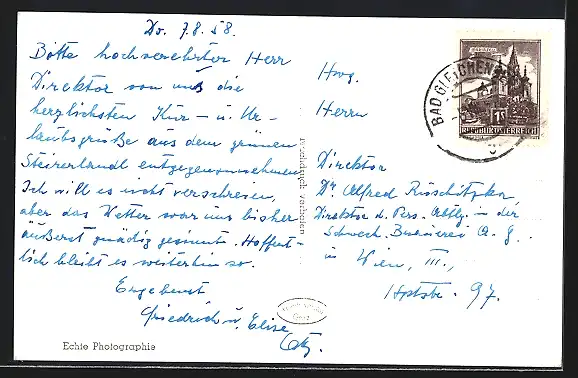 Do. 7.8.58.
Bitte hochverehrter Herr
Direktor von uns die
herzlichsten Kur- u. Ur-
laubsgrüße aus dem grünen
Steirerlandl entgegenzunehmen
Ich will es nicht verschreien,
aber das Wetter war uns bisher
äußerst gnädig gesinnt. Hoffent-
lich bleibt es weiterhin so.
Ergebenst
Friedrich u. Elise
Echte Photographie
BAD GLEICHEN
REPUBLIK ÖSTERREICH
Herrn
Direktor
Dr. Alfred
Direktor d. Pers. Abtlg. in der
Schwech. Brauerei A.G.
in Wien, III.,
Hptstr. 97.